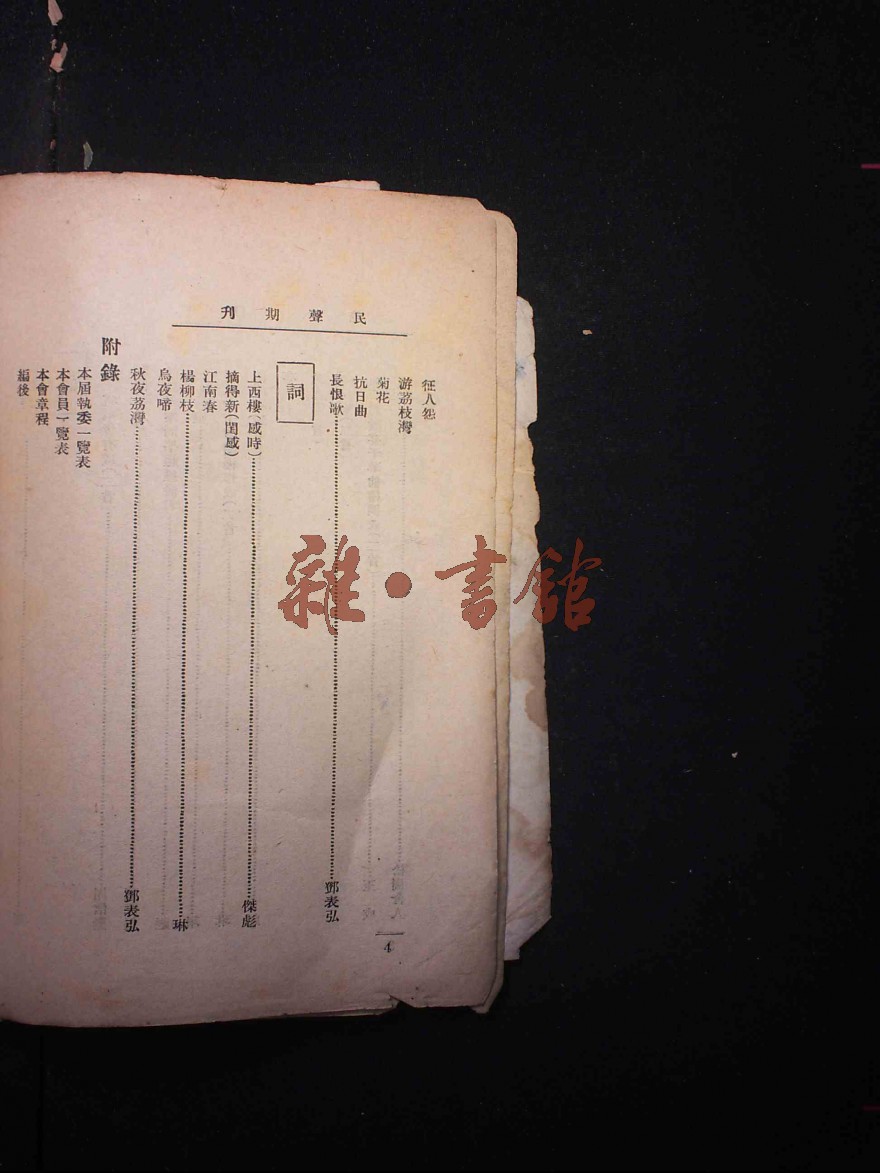 民聲期刊
征人怨
游荔枝灣
菊花
抗日曲
長恨歌……鄧表弘
詞
上西樓(感時)……傑彪
摘得新(閨感)
江南春
楊柳枝……琳
烏夜啼
秋夜荔灣……鄧表弘
附錄
本屆執委一覽表
本會員一覽表
本會章程
編後
4
雜·書館